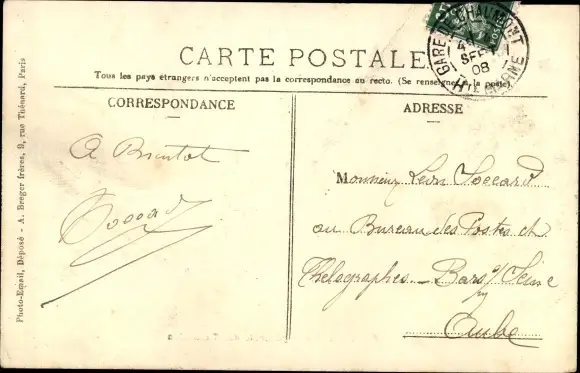 CARTE POSTALE
Tous les pays étrangers n'acceptent pas la correspondance au recto. (Se renseigner à la poste)
CORRESPONDANCE
ADRESSE
A Bientot
Monsieur Léon Soccard
au Bureau des Postes et
Thelegraphes - Bars s/ Seine
Aube
GARE DE CHAUMONT
SEPT
08
HTE MARNE
Photo-Email, Déposé - A. Breger frères, 9, rue Thénard, Paris